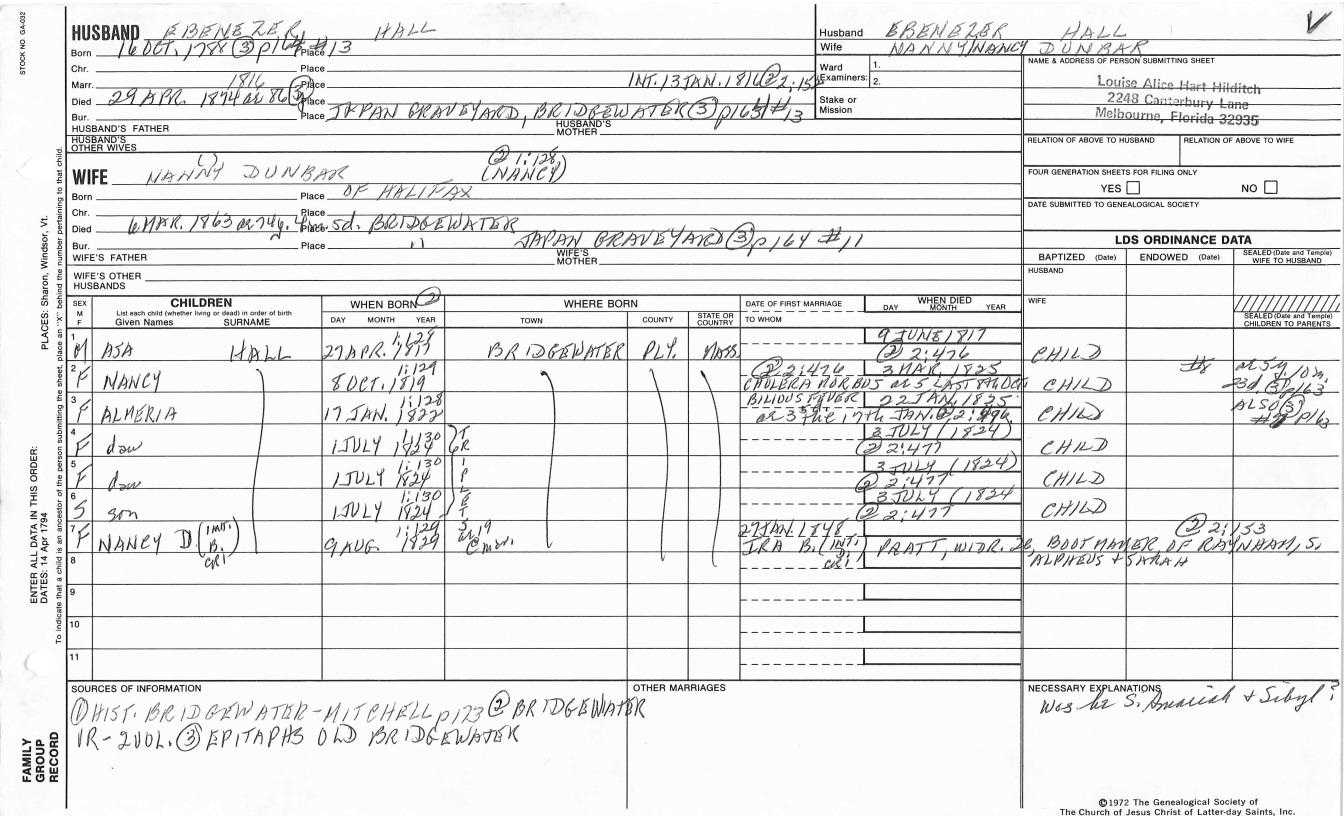 STOCK NO. GA-032
HUSBAND EBENEZER HALL
Born 16 OCT. 1788 (3) p164 #13 Place
Chr. Place
Marr. 1816 Place INT. 13 JAN. 1816 (2) 2:15
Died 29 APR. 1874 or 86 (3) Place
Bur. Place JAPAN GRAVEYARD, BRIDGEWATER (3) p163 #13
HUSBAND'S FATHER HUSBAND'S MOTHER
HUSBAND'S OTHER WIVES
WIFE NANNY DUNBAR (2) 1:128, (NANCY)
Born Place OF HALIFAX
Chr. Place
Died 6 MAR. 1863 Place BRIDGEWATER
Bur. Place " JAPAN GRAVEYARD (3) p164 #11
WIFE'S FATHER WIFE'S MOTHER
WIFE'S OTHER HUSBANDS
Husband EBENEZER HALL
Wife NANNY/NANCY DUNBAR
Ward Examiners: 1. 2.
Stake or Mission
NAME & ADDRESS OF PERSON SUBMITTING SHEET
Louise Alice Hart Hilditch
2248 Canterbury Lane
Melbourne, Florida 32935
RELATION OF ABOVE TO HUSBAND RELATION OF ABOVE TO WIFE
FOUR GENERATION SHEETS FOR FILING ONLY
YES NO
DATE SUBMITTED TO GENEALOGICAL SOCIETY
LDS ORDINANCE DATA
BAPTIZED (Date) ENDOWED (Date) SEALED (Date and Temple) WIFE TO HUSBAND
HUSBAND
WIFE
SEALED (Date and Temple) CHILDREN TO PARENTS
SEX M F CHILDREN List each child (whether living or dead) in order of birth Given Names SURNAME
WHEN BORN (2) DAY MONTH YEAR
WHERE BORN TOWN COUNTY STATE OR COUNTRY
DATE OF FIRST MARRIAGE TO WHOM
WHEN DIED DAY MONTH YEAR
1 M ASA HALL 27 APR. 1817 1:128 BRIDGEWATER PLY. MASS. 9 JUNE 1817 (2) 2:476 CHILD
2 F NANCY 8 OCT. 1819 1:129 (2) 2:476 CHOLERA MORBUS or 5 LAST 8th OCT. 3 MAR. 1825 CHILD
3 F ALMERIA 17 JAN. 1822 1:128 BILIOUS FEVER or 3 the 17th JAN. (2) 2:476 22 JAN. 1825 CHILD ALSO (3) p163
4 F daw 1 JULY 1824 1:130 3 JULY (1824) (2) 2:477 CHILD
5 F daw 1 JULY 1824 1:130 3 JULY (1824) (2) 2:477 CHILD
6 S son 1 JULY 1824 1:130 3 JULY (1824 (2) 2:477 CHILD
TRIPLETS
7 F NANCY D (INT. B. CRI) 9 AUG. 1829 1:129 27 JAN. 1848 IRA B. (INT. D. CRI) PRATT, WIDR. 26, BOOTMAKER OF RAYNHAM, S. ALPHEUS & SARAH (2) 2:153
8
9
10
11
SOURCES OF INFORMATION
(1) HIST. BRIDGEWATER-MITCHELL p173 (2) BRIDGEWATER
VR-2 VOL. (3) EPITAPHS OLD BRIDGEWATER
OTHER MARRIAGES
NECESSARY EXPLANATIONS
Was he S. Amasiah & Sibyl?
ENTER ALL DATA IN THIS ORDER:
DATES: 14 Apr 1794
PLACES: Sharon, Windsor, Vt.
To indicate that a child is an ancestor of the person submitting the sheet, place an "X" behind the number pertaining to that child.
FAMILY
GROUP
RECORD
©1972 The Genealogical Society of
The Church of Jesus Christ of Latter-day Saints, Inc.